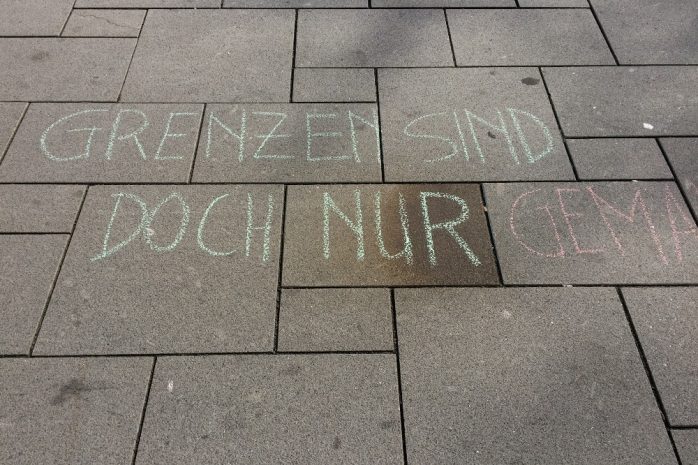 GRENZEN SIND
DOCH NUR GEMA